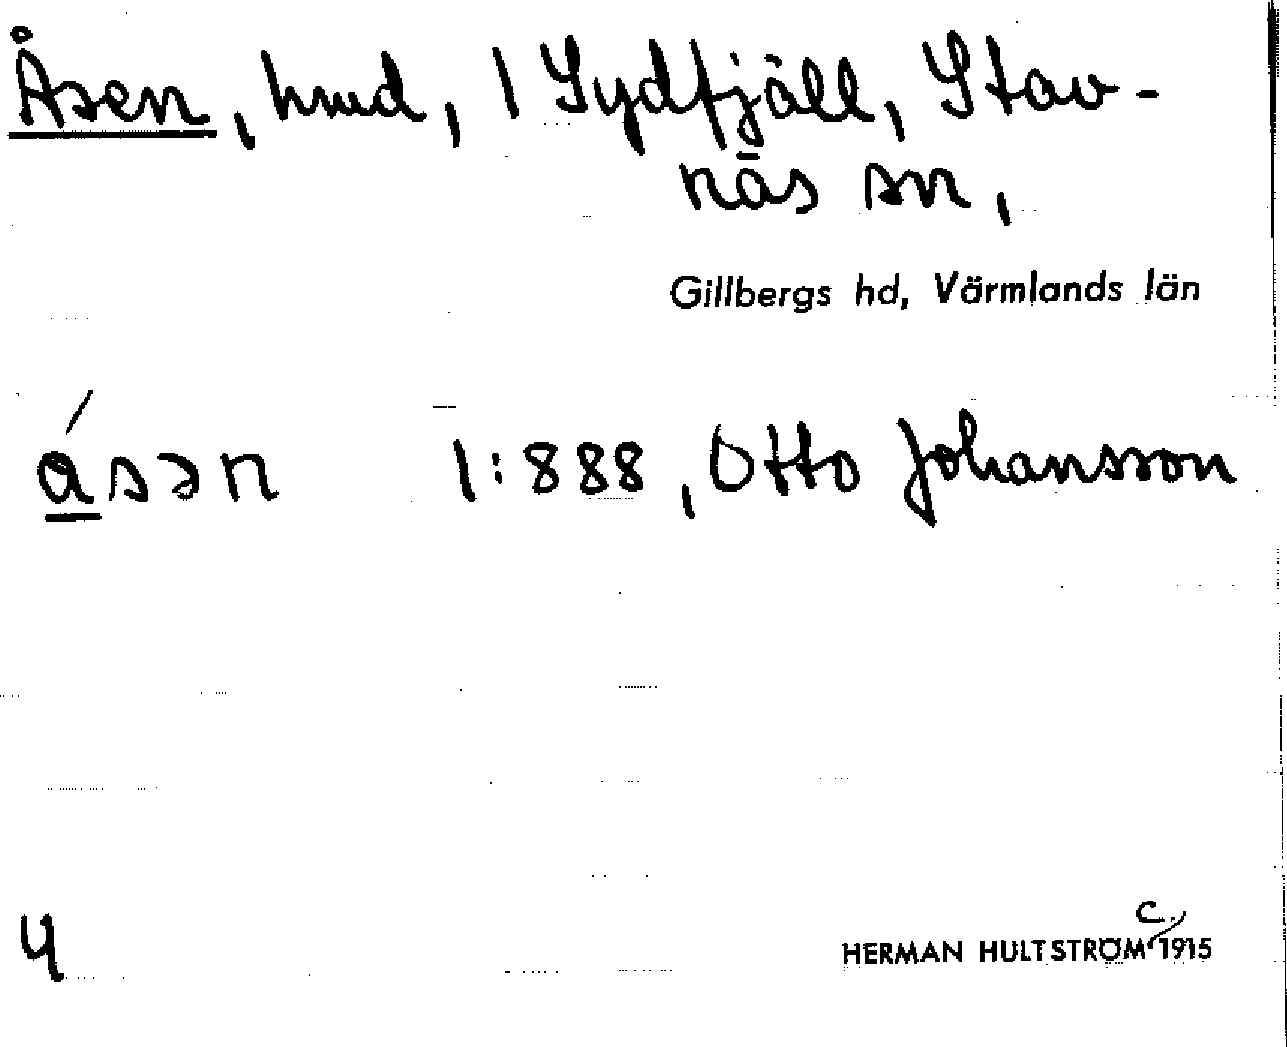 Åsen, hmd, 1 Sydfjäll, Stav-
näs sn,
Gillbergs hd, Värmlands län
á̱sən 1:888, Otto Johansson
4
HERMAN HULTSTRÖM c. 1915